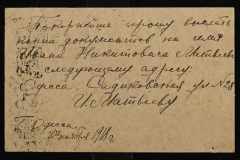 Покорнейше прошу выслать
копии документов на имя
Ивана Никитовича Матвеева
следующему адресу
Одесса Садиковская ул № 28
И. Матвееву
Одесса
1911 г.